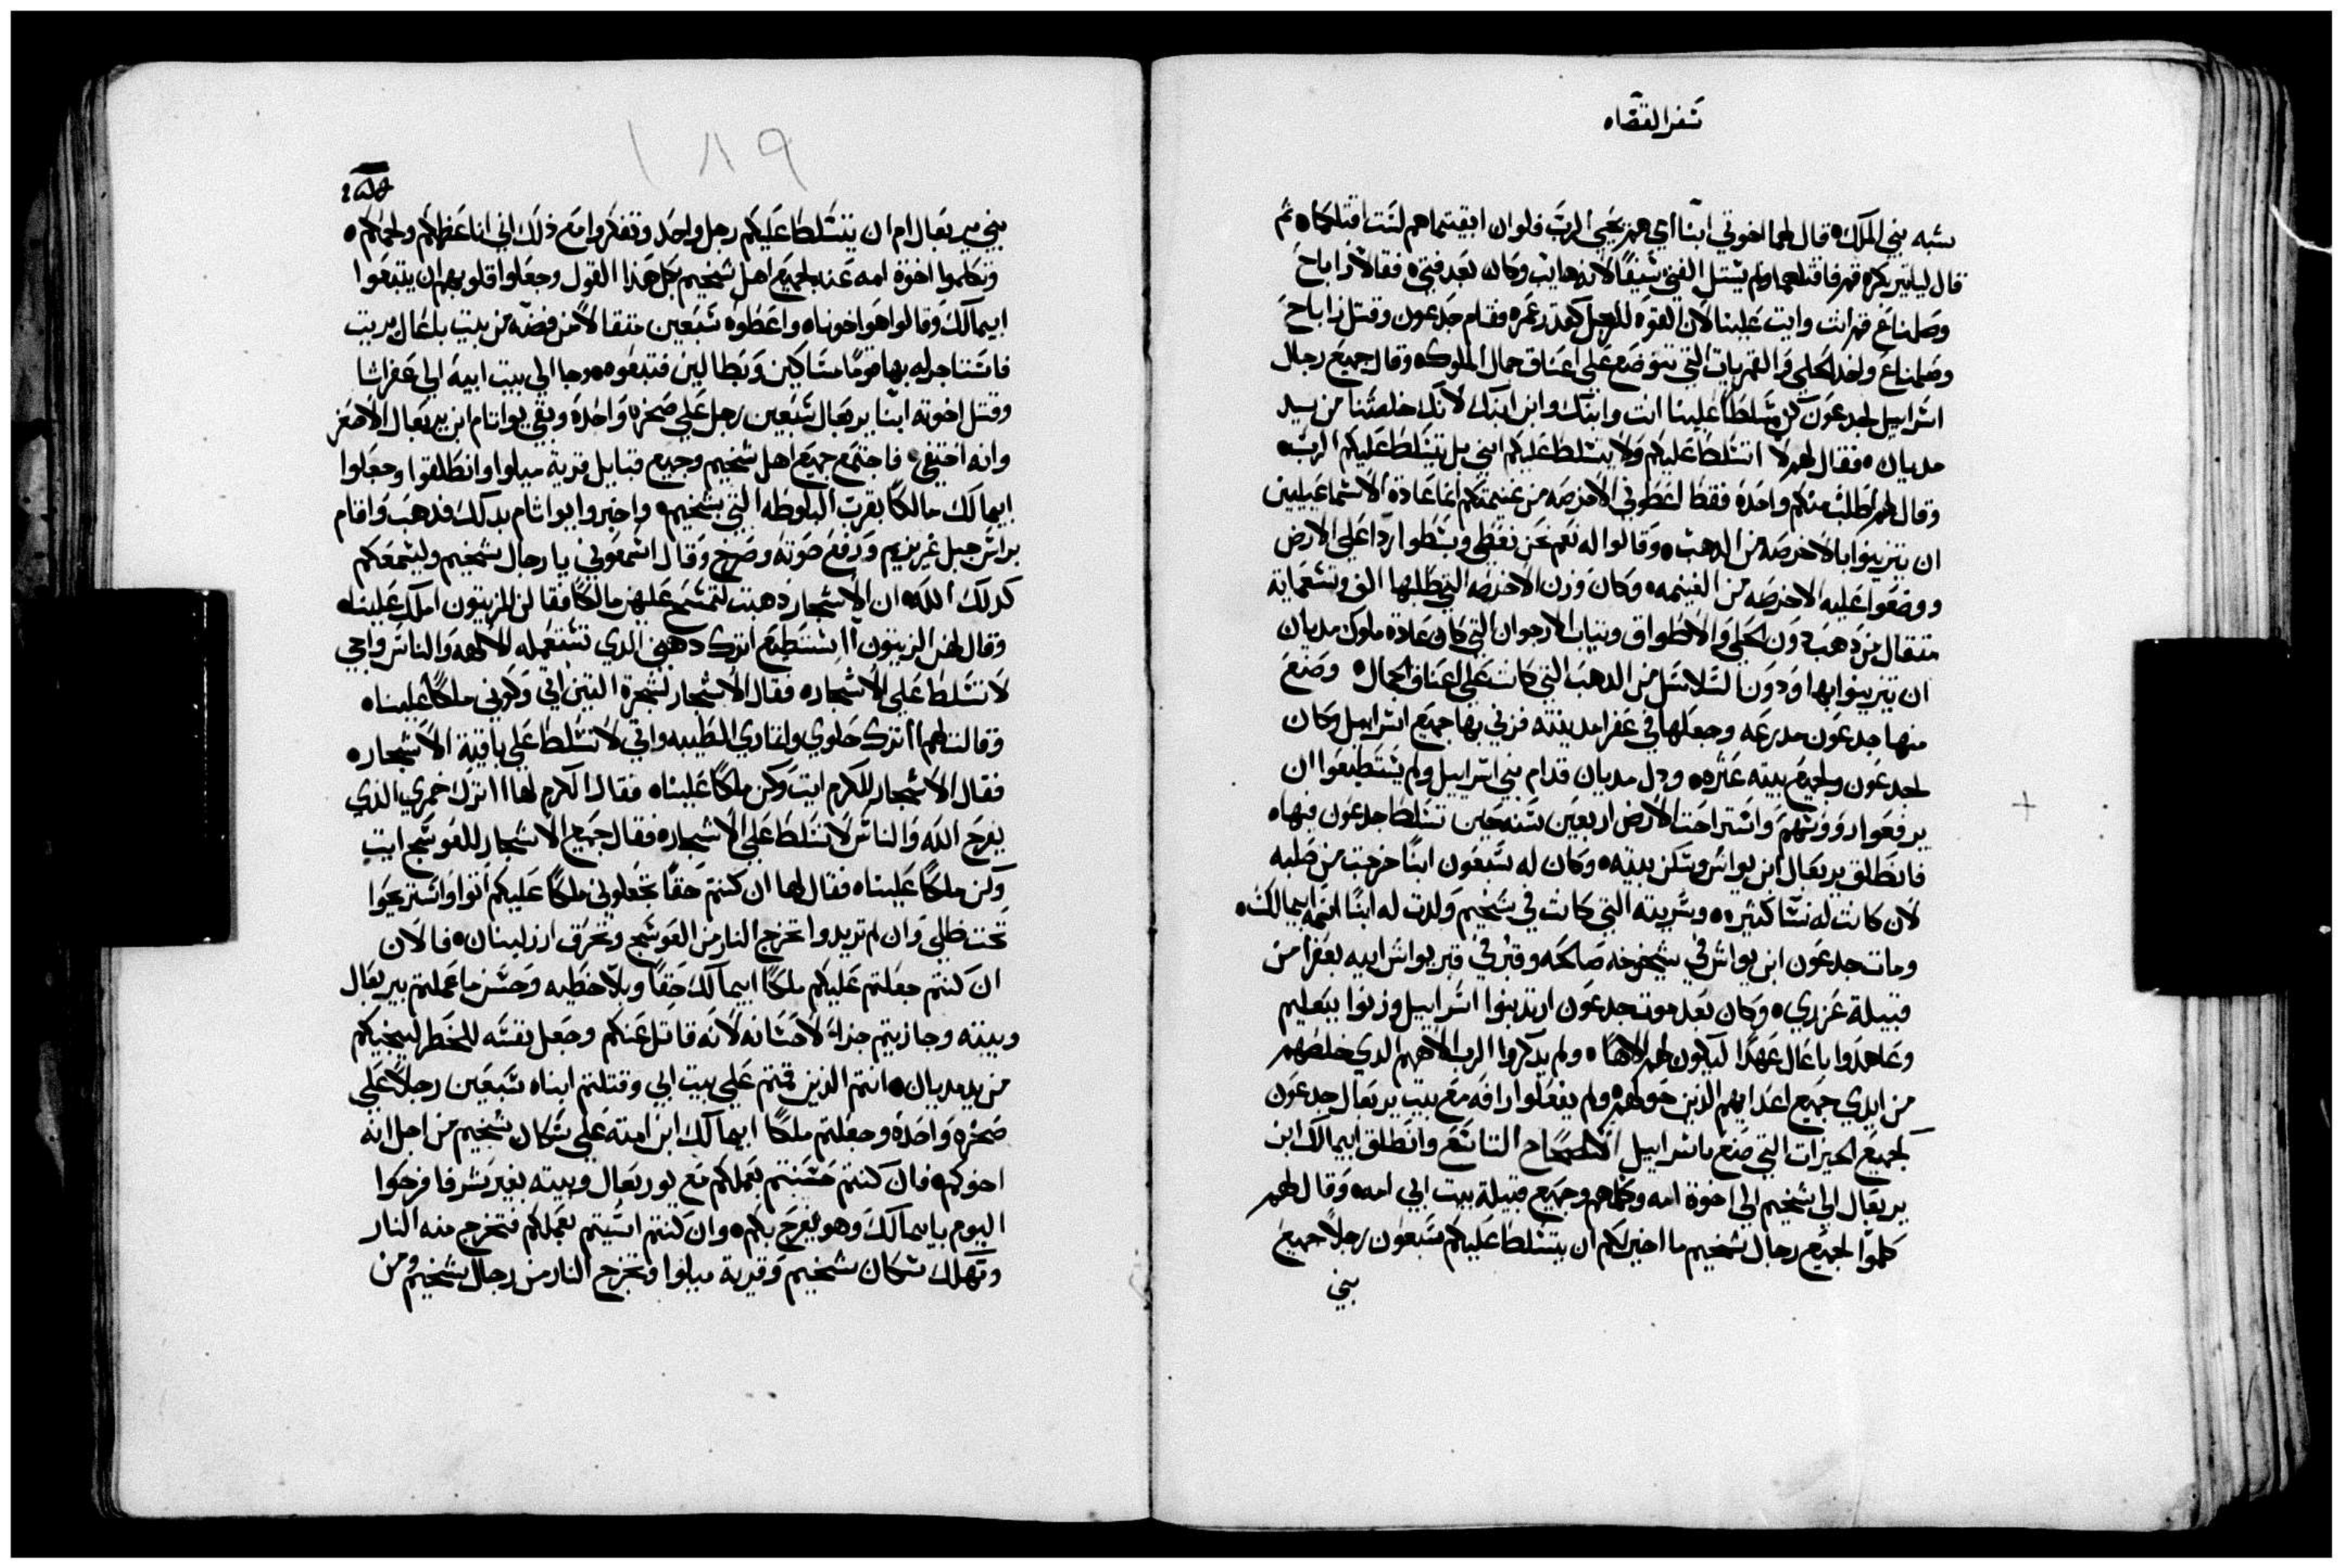 سفر القضاه
بشبه بني الملك ه قال لهما اخوتي ابنا امي هم يحيي الرب فلو ان ابقيتماهم لست اقتلكما ه ثم
قال ليايتر بكره قم فاقتلهما ولم يستل الفتي سيفًا لانه هايب وكان بعد فتي ه فقالا زاباح
وصلمناع قم انت وايت علينا لان القوه للرجل كمقدر عمره فقام جدعون وقتل زاباح
وصلمناع واخذ الحلي والقمريات التي توضع علي اعناق جمال الملوك ه وقال جميع رجال
اسراييل لجدعون كن متسلطًا علينا انت وابنك وابن ابنك لانك خلصتنا من يد
مديان ه فقال لهم لا اتسلط عليكم ولا يتسلط عليكم ابني بل يتسلط عليكم الرب ه
وقال لهم اطلب منكم واحدة فقط اعطوني الاخرصه من غنيمتكم انما عادة الاسماعيليين
ان يتزينوا بالاخرصه من الدهب ه وقالوا له نعم نحن نعطي وبسطوا ردا علي الارض
ووضعوا عليه الاخرصه من الغنيمه ه وكان وزن الاخرصه التي طلبها الف وتسعماية
متقال من دهب دون الحلي والاطواق وتياب الارجوان التي كان عادة ملوك مديان
ان يتزينوا بها ودون السلاسل من الدهب التي كانت علي اعناق الجمال ه وصنع
منها جدعون مدرعه وجعلها في عفرا مدينته فزني بها جميع اسراييل وكان
لجدعون ولجميع بيته عتره ه ودل مديان قدام بني اسراييل ولم يستطيعوا ان
يرفعوا رووسهم واستراحت الارض اربعين سنه حين تسلط جدعون فيها ه
فانطلق يربعال ابن يواش وسكن بيته ه وكان له سبعون ابنًا خرجت من صلبه
لان كانت له نسا كثيره ه وسريته التي كانت في شخيم ولدت له ابنًا اسمه ابيمالك ه
ومات جدعون ابن يواش في شيخوخه صالحه وقبر في قبر يواش ابيه بعفرا من
قبيلة عزري ه وكان بعد موت جدعون ارتد بنوا اسراييل وزنوا ببعليم
وعاهدوا باعال عهدًا ليكون لهم الاهًا ه ولم يدكروا الرب الاههم الدي خلصهم
من ايدي جميع اعدايهم الذين حولهم ه ولم يفعلوا رافه مع بيت يربعال جدعون
لجميع الخيرات التي صنع باسراييل الاصحاح التاسع وانطلق ابيمالك ابن
يربعال الي شخيم الي اخوة امه وكلمهم وجميع قبيلة بيت ابي امه ه وقال لهم
كلموا لجميع رجال شخيم ما اخير لكم ان يتسلط عليكم سبعون رجلاً جميع
بني
١٨٩
بني يربعال ام ان يتسلط عليكم رجل واحد وتفكروا مع ذلك اني انا عظمكم ولحمكم ه
وتكلموا اخوة امه عنه لجميع اهل شخيم بكل هذا القول وجعلوا قلوبهم ان يتبعوا
ابيمالك وقالوا هو اخونا ه واعطوه سبعين متقالاً من فضه من بيت بلعال بريت
فاستاجر له بها قومًا مساكين وبطالين فتبعوه ه وجا الي بيت ابيه الي عفراتا
وقتل اخوته ابنا يربعال سبعين رجل علي صخره واحدة وبقي يواتام ابن يربعال الاصغر
وانه اختفي ه فاجتمع جميع اهل شخيم وجميع قبايل قرية ميلوا وانطلقوا وجعلوا
ابيمالك مالكًا بقرب البلوطه التي بشخيم ه واخبروا يواتام بدلك فدهب واقام
براس جبل غريزيم ورفع صوته وصرخ وقال اسمعوني يا رجال شخيم وليسمعكم
كدلك الله ه ان الاشجار دهبت لتمسح عليهن مالكًا فقالن للزيتون املك علينا ه
وقال لهن الزيتون اا استطيع اترك دهني الدي تستعمله الالهه والناس واجي
لاتسلط علي الاشجار ه فقال الاشجار لشجرة التين اتي وكوني ملكًا علينا ه
وقالت لهم اا اترك حلوي واتماري الطيبه واتي لاتسلط علي باقية الاشجار ه
فقال الاشجار للكرم ايت وكن ملكًا علينا ه فقال الكرم لها اا اترك خمري الذي
يفرح الله والناس لاتسلط علي الاشجار ه فقال جميع الاشجار للعوسج ايت
وكن ملكًا علينا ه فقال لها ان كنتم حقًا تجعلوني ملكًا عليكم اتوا واستريحوا
تحت ظلي وان لم تريدوا تخرج النار من العوسج وتحرق ارز لبنان ه فالان
ان كنتم جعلتم عليكم ملكًا ابيمالك حقًا وبلا خطيه وحسن ما عملتم بيربعال
وبيته وجازيتم جزاء لاحسانه لانه قاتل عنكم وجعل نفسه للخطر لينجيكم
من يد مديان ه انتم الذين قمتم علي بيت ابي وقتلتم ابناه سبعين رجلاً علي
صخره واحدة وجعلتم ملكًا ابيمالك ابن امته علي سكان شخيم من اجل انه
اخوكم ه فان كنتم حسنتم بعملكم مع يوربعال وبيته بغير شر فافرحوا
اليوم بابيمالك وهو يفرح بكم ه وان كنتم استيتم بعملكم فتخرج منه النار
وتهلك سكان شخيم وقرية ميلوا وتخرج النار من رجال شخيم ومن